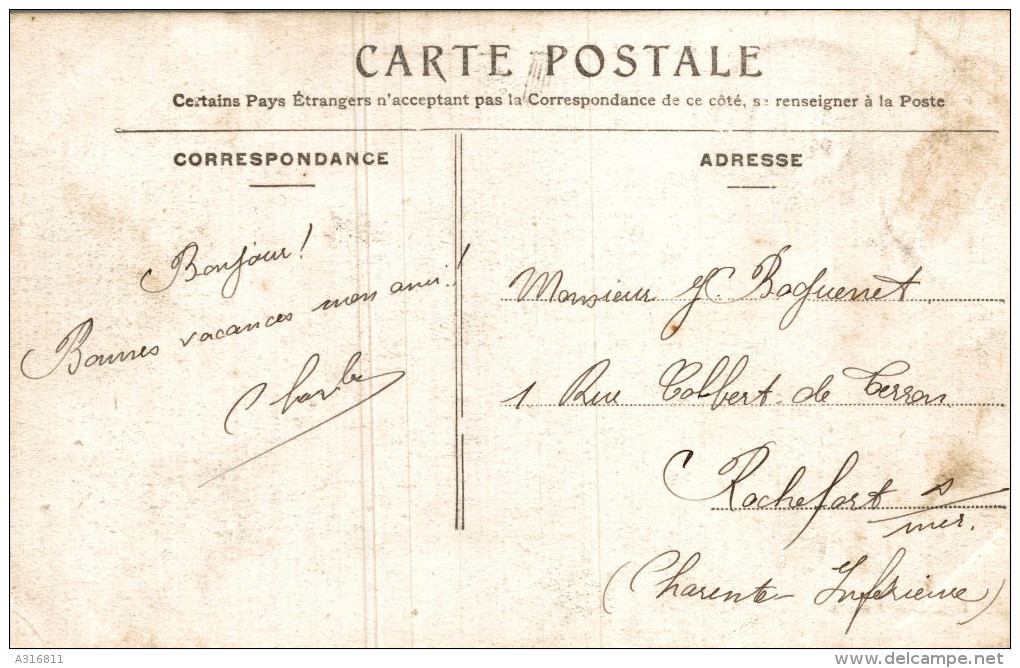 CARTE POSTALE
Certains Pays Étrangers n'acceptant pas la Correspondance de ce côté, se renseigner à la Poste
CORRESPONDANCE
Bonjour!
Bonnes vacances mon ami!
ADRESSE
Monsieur G. Baguenet
1 Rue Colbert de Terron
Rochefort s/mer.
(Charente Inférieure)
A316811
delcampe.net